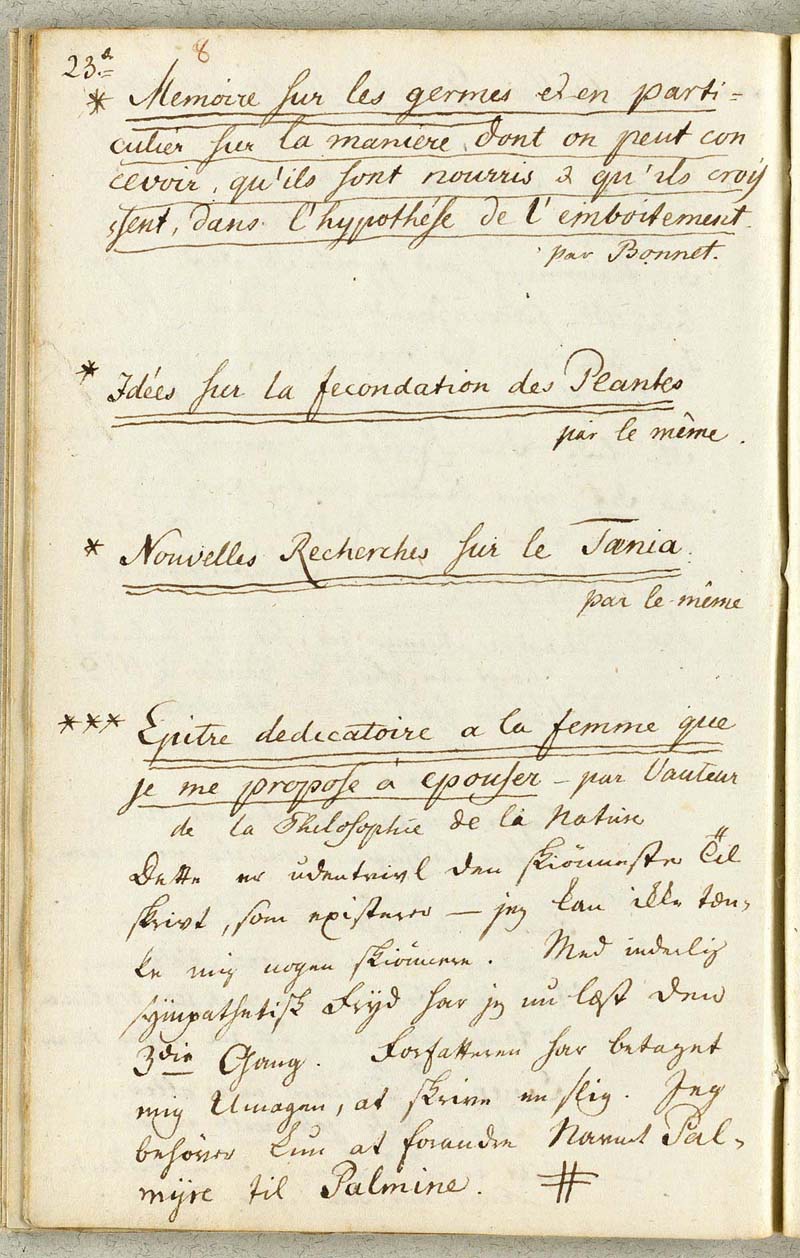 23.d 8
* Memoire sur les germes et en parti=
culier sur la maniere dont on peut con
cevoir, qu'ils sont nourris & qu'ils crois
ssent, dans l'hypothése de l'emboitement.
par Bonnet.
* Idées sur la fecondation des Plantes
par le même.
* Nouvelles Recherches sur le Tænia.
par le même
*** Epitre dedicatoire a la femme que
je me propose à epouser – par l'auteur
de la Philosophie de la Nature
Dette er udentvivl den skiönneste Til
skrivt, som existerer – jeg kan ikke tæn-
ke mig nogen skiönnere. Med inderlig
sympathetisk Fryd har jeg nu læst den
3die Gang. Forfatteren har betaget
mig Umagen, at skrive en slig. Jeg
behöver kun at forandre Navnet Pal-
myre til Palmine. #